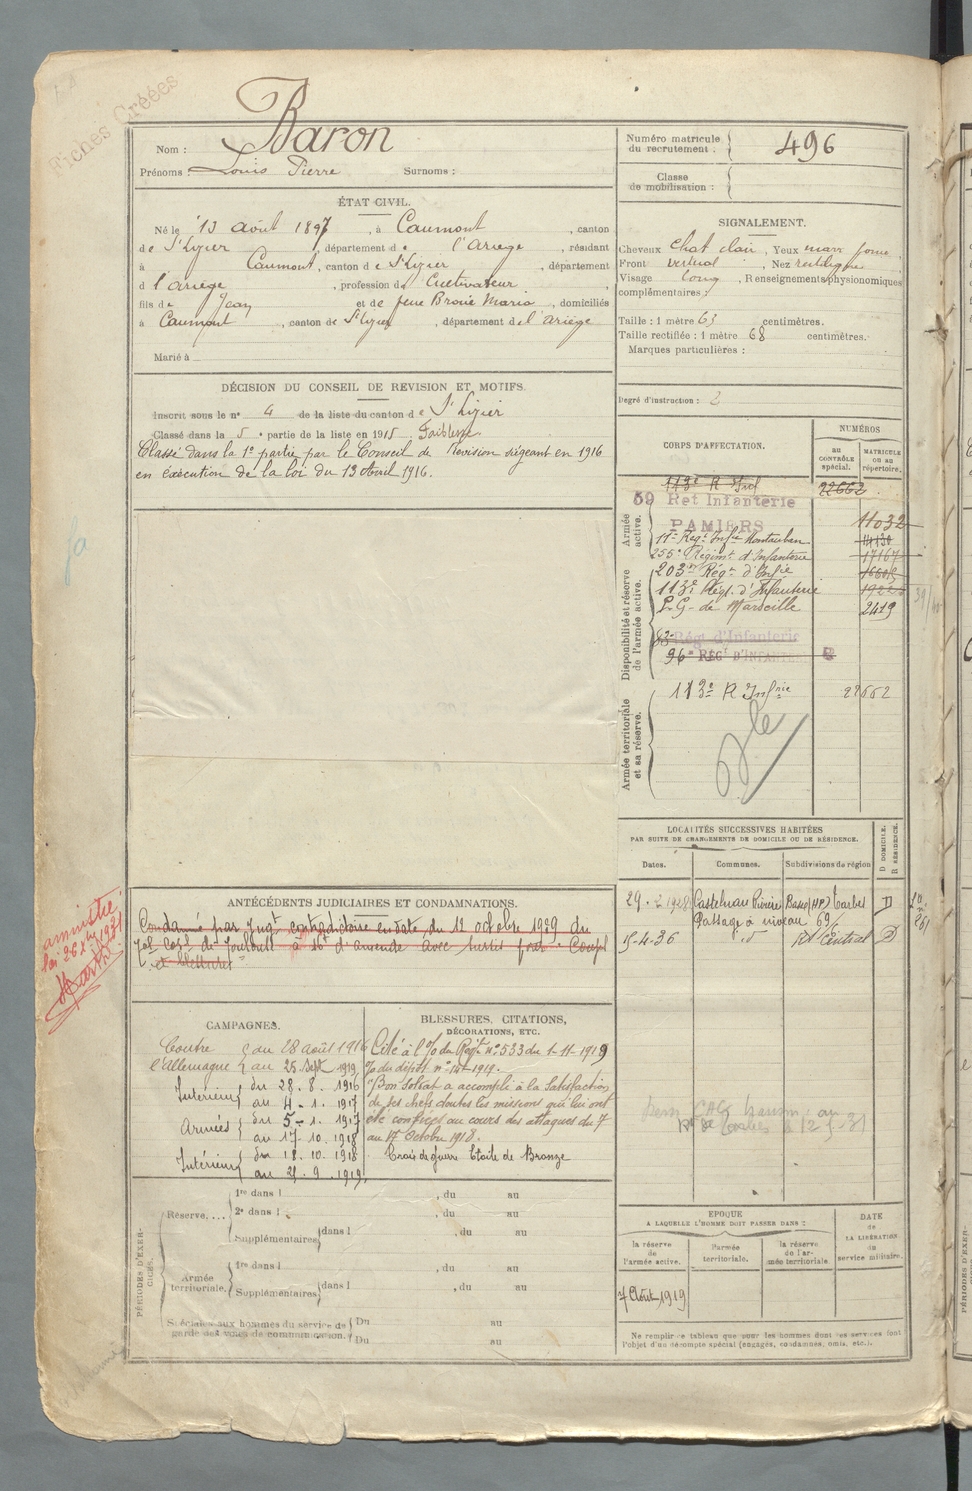 Fiches Créées
Nom : Baron
Prénoms : Louis Pierre Surnoms :
Numéro matricule du recrutement : 496
Classe de mobilisation :
ÉTAT CIVIL.
Né le 13 août 1897, à Caumont, canton
de St Lizier, département de l'Ariège, résidant
à Caumont, canton de St Lizier, département
d l'Ariège, profession de Cultivateur
fils de Jean et de feue Broué Maria, domiciliés
à Caumont, canton de St Lizier, département de l'Ariège
Marié à
SIGNALEMENT.
Cheveux chat clair, Yeux marr
Front vertical, Nez rectiligne
Visage long, Renseignements physionomiques
complémentaires :
Taille : 1 mètre 63 centimètres.
Taille rectifiée : 1 mètre 68 centimètres.
Marques particulières :
Degré d'instruction : 2
DÉCISION DU CONSEIL DE REVISION ET MOTIFS.
Inscrit sous le n° 4 de la liste du canton de St Lizier
Classé dans la 5e partie de la liste en 1915 Faiblesse
Classé dans la 1e partie par le Conseil de Revision siégeant en 1916
en exécution de la loi du 13 Avril 1916.
CORPS D'AFFECTATION.
NUMÉROS
au CONTRÔLE spécial.
MATRICULE ou au répertoire.
Armée active.
113e R Inf 22662
59 Ret Infanterie
PAMIERS 11032
11e Régt Infie Montauban
255e Régimt d'Infanterie 17167
Disponibilité et réserve de l'armée active.
203e Régt d'Infie
113e Régt d'Infanterie
P.G. de Marseille 2419
83e Rég. d'Infanterie
96e RÉGt D'INFANTERIE
Armée territoriale et sa réserve.
113e R Infrie
LOCALITÉS SUCCESSIVES HABITÉES
PAR SUITE DE CHANGEMENTS DE DOMICILE OU DE RÉSIDENCE.
Dates. Communes. Subdivisions de région
D DOMICILE. R RÉSIDENCE.
Castelnau Rivière Basse (HP) Tarbes D
Passage à niveau 69
15-4-36 Rt Central D
ANTÉCÉDENTS JUDICIAIRES ET CONDAMNATIONS.
Condamné par Jugt contradictoire en date du 11 octobre 1929 du
Tal Corl de Toulouse à 16f d'amende avec sursis pour Coups
et blessures
amnistie
loi 26 1931
CAMPAGNES.
Contre l'Allemagne du 28 août 1916
au 25 Sept 1919
Intérieur du 28. 8. 1916
au 4. 1. 1917
Armées du 5. 1. 1917
au 17. 10. 1918
Intérieur du 18. 10. 1918
au 21. 9. 1919
BLESSURES, CITATIONS,
DÉCORATIONS, ETC.
Cité à l'o/ du Régt n° 533 du 1-11-1919
o/ du dépôt n° 14-1919.
"Bon Soldat a accompli à la satisfaction
de ses chefs toutes les missions qui lui ont
été confiées au cours des attaques du 7
au 17 Octobre 1918.
Croix de guerre Etoile de Bronze
PÉRIODES D'EXERCICES.
Réserve....
1re dans l , du au
2e dans l , du au
Supplémentaires dans l , du au
Armée territoriale.
1re dans l , du au
Supplémentaires dans l , du au
Spéciales aux hommes du service de garde des voies de communication.
Du au
Du au
EPOQUE
A LAQUELLE L'HOMME DOIT PASSER DANS :
la réserve de l'armée active.
l'armée territoriale.
la réserve de l'armée territoriale
DATE de LA LIBÉRATION du service militaire.
7 Août 1919
Ne remplir ce tableau que pour les hommes dont les services font
l'objet d'un décompte spécial (engagés, condamnés, omis, etc.).